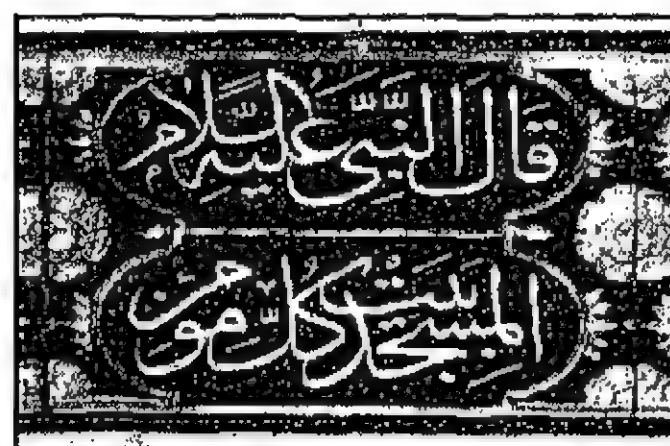 قال النبي عليه السلام
المسجد بيت كل مؤمن